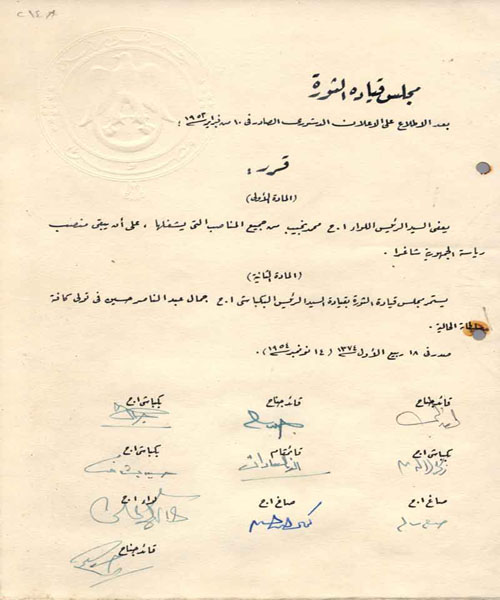 مجلس قيادة الثورة
بعد الاطلاع على الاعلان الدستورى الصادر فى ١٠ من فبراير ١٩٥٣ ؛
قرر :
(المادة الأولى)
يعفى السيد الرئيس اللواء ا.ح محمد نجيب من جميع المناصب التى يشغلها ، على أن يبقى منصب
رياسة الجمهورية شاغرا .
(المادة الثانية)
يستمر مجلس قيادة الثورة بقيادة السيد الرئيس البكباشى ا.ح جمال عبد الناصر حسين فى تولى كافة
سلطاته الحالية .
صدر فى ١٨ ربيع الأول ١٣٧٤ (١٤ نوفمبر ١٩٥٤) .
قائد جناح قائد جناح بكباشى ا.ح
بكباشى ا.ح قائمقام بكباشى ا.ح
صاغ ا.ح صاغ ا.ح لواء ا.ح
قائد جناح